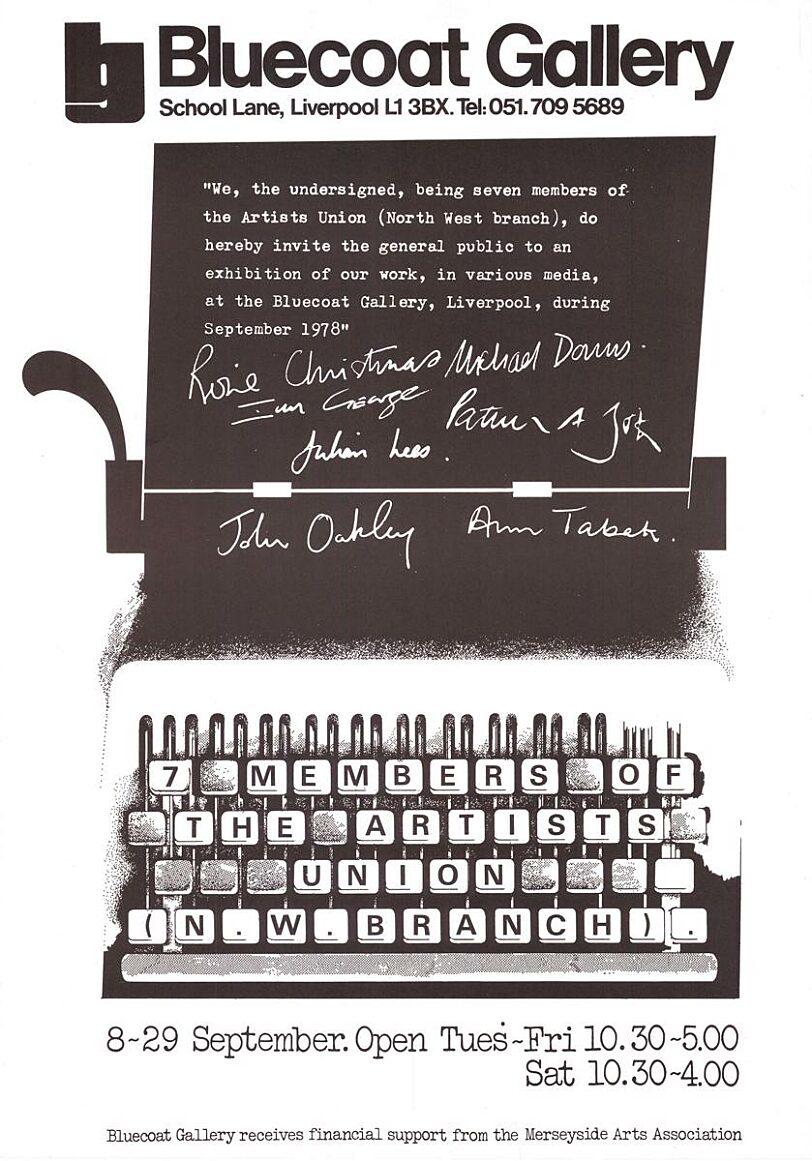 bg
Bluecoat Gallery
School Lane, Liverpool L1 3BX. Tel: 051. 709 5689
"We, the undersigned, being seven members of
the Artists Union (North West branch), do
hereby invite the general public to an
exhibition of our work, in various media,
at the Bluecoat Gallery, Liverpool, during
September 1978"
Rosie Christmas Michael Downs.
Ian George
Julian Lees.
John Oakley Ann Tabak.
7 MEMBERS OF
THE ARTISTS
UNION
(N.W.BRANCH).
8~29 September. Open Tues~Fri 10.30~5.00
Sat 10.30~4.00
Bluecoat Gallery receives financial support from the Merseyside Arts Association